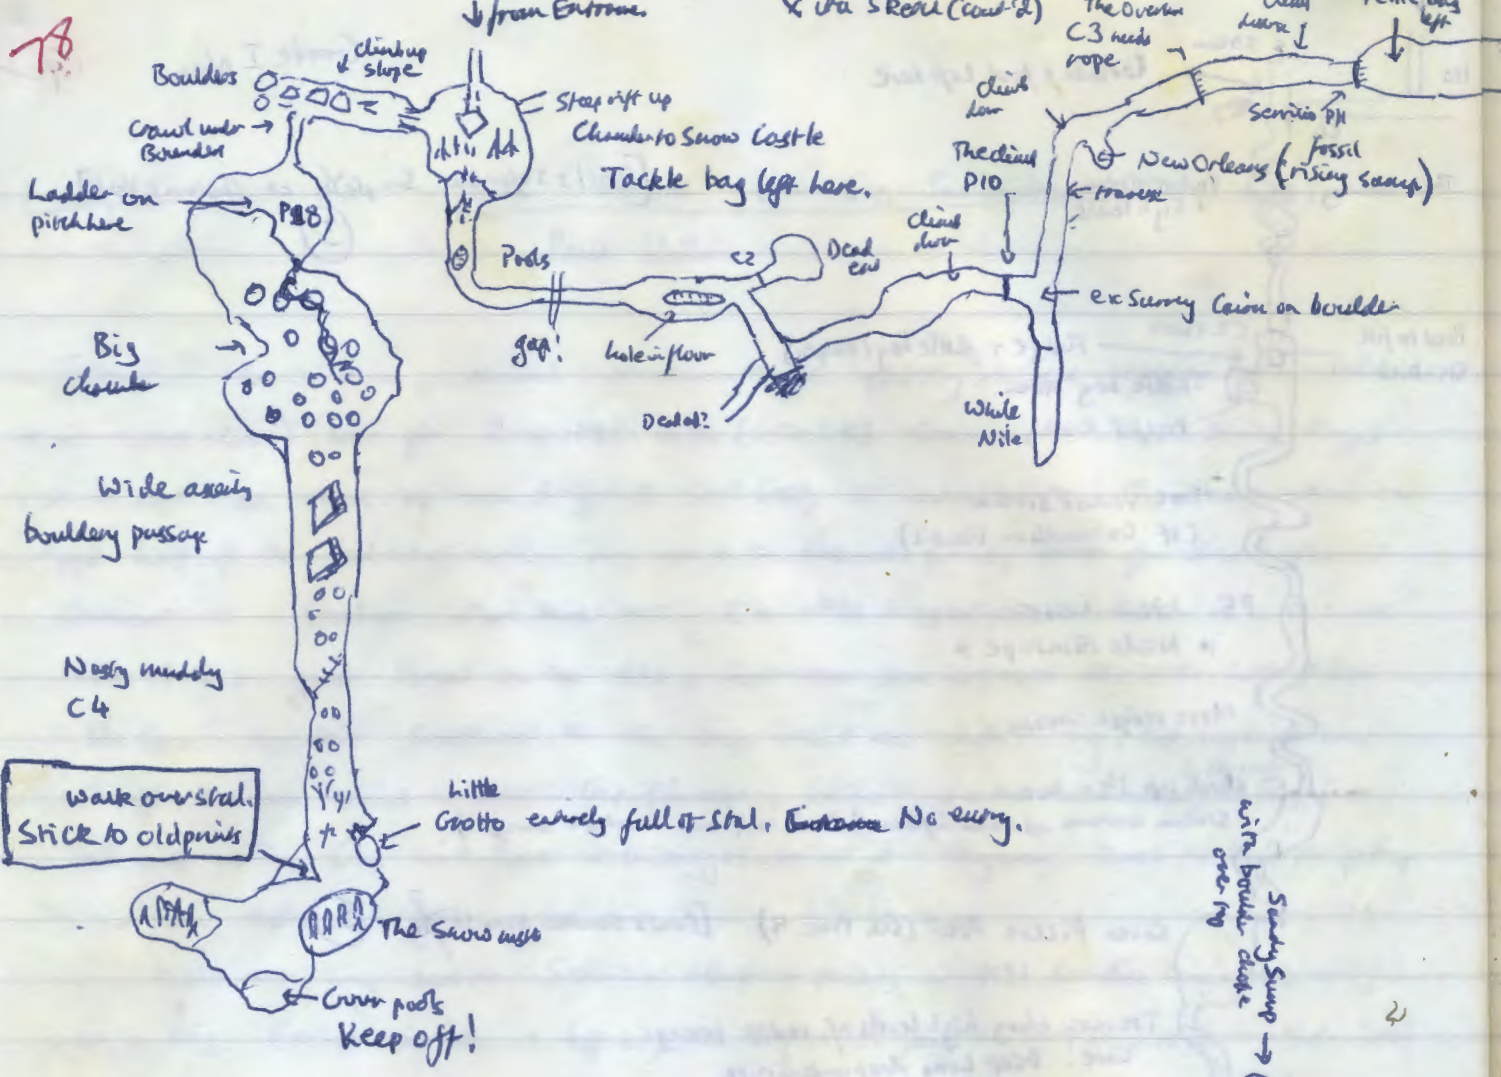 78
from Entrance
(cont'd)
The Overtime
C3 needs
rope
climb
down
bag
left
Boulders
climb up
slope
Crawl under
Boulders
Steep rift up
Chamber to Snow Castle
Tackle bag left here.
Ladder on
pitch here
P18
Pools
gap!
hole in floor
C2
Dead
end
Dead end?
climb
down
climb
down
The climb
P10
traverse
New Orleans (fossil
rising sump)
Services P11
ex Surrey Cairn on boulder
White
Nile
Big
Chamber
Wide
bouldery passage
Nasty muddy
C4
Walk over stal.
Stick to old prints
Little
Grotto entirely full of stal. No entry.
The Snow
Gour pools
Keep off!
Sandy Sump
with boulder choke
over top